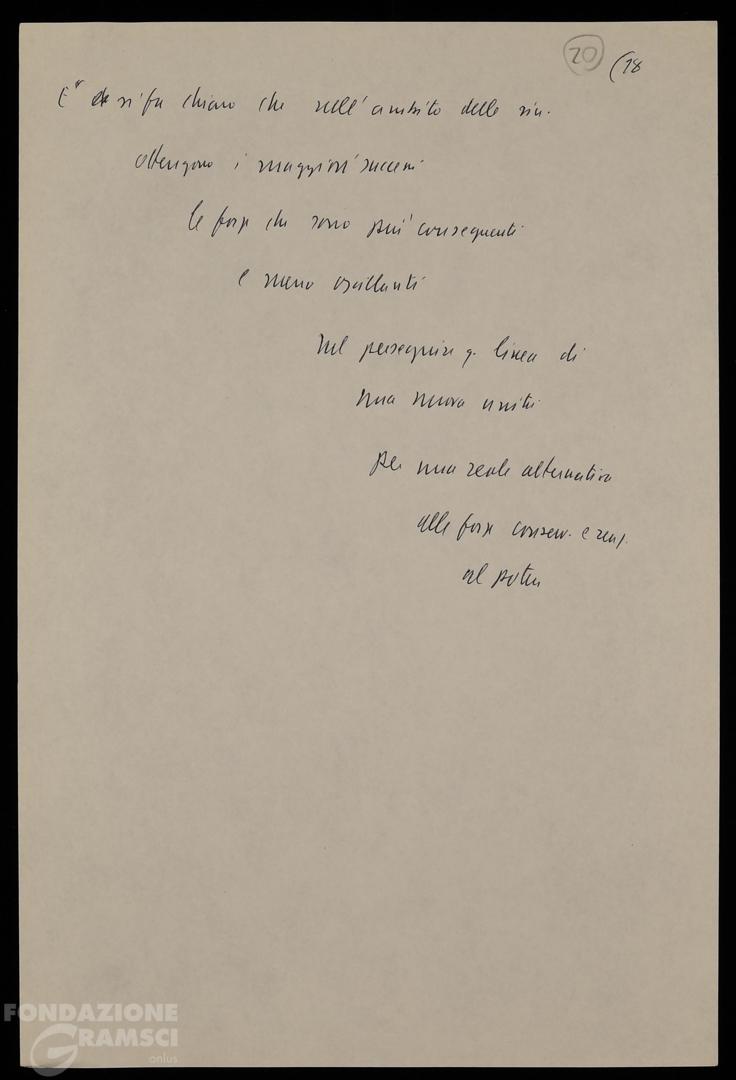 20 (18
E" si fa chiaro che nell'ambito delle sin.
ottengono i maggiori successi
le forze che sono più conseguenti
e meno oscillanti
nel perseguire q. linea di
una nuova unità
per una reale alternativa
alle forze conserv. e reaz.
al potere
FONDAZIONE
GRAMSCI
onlus